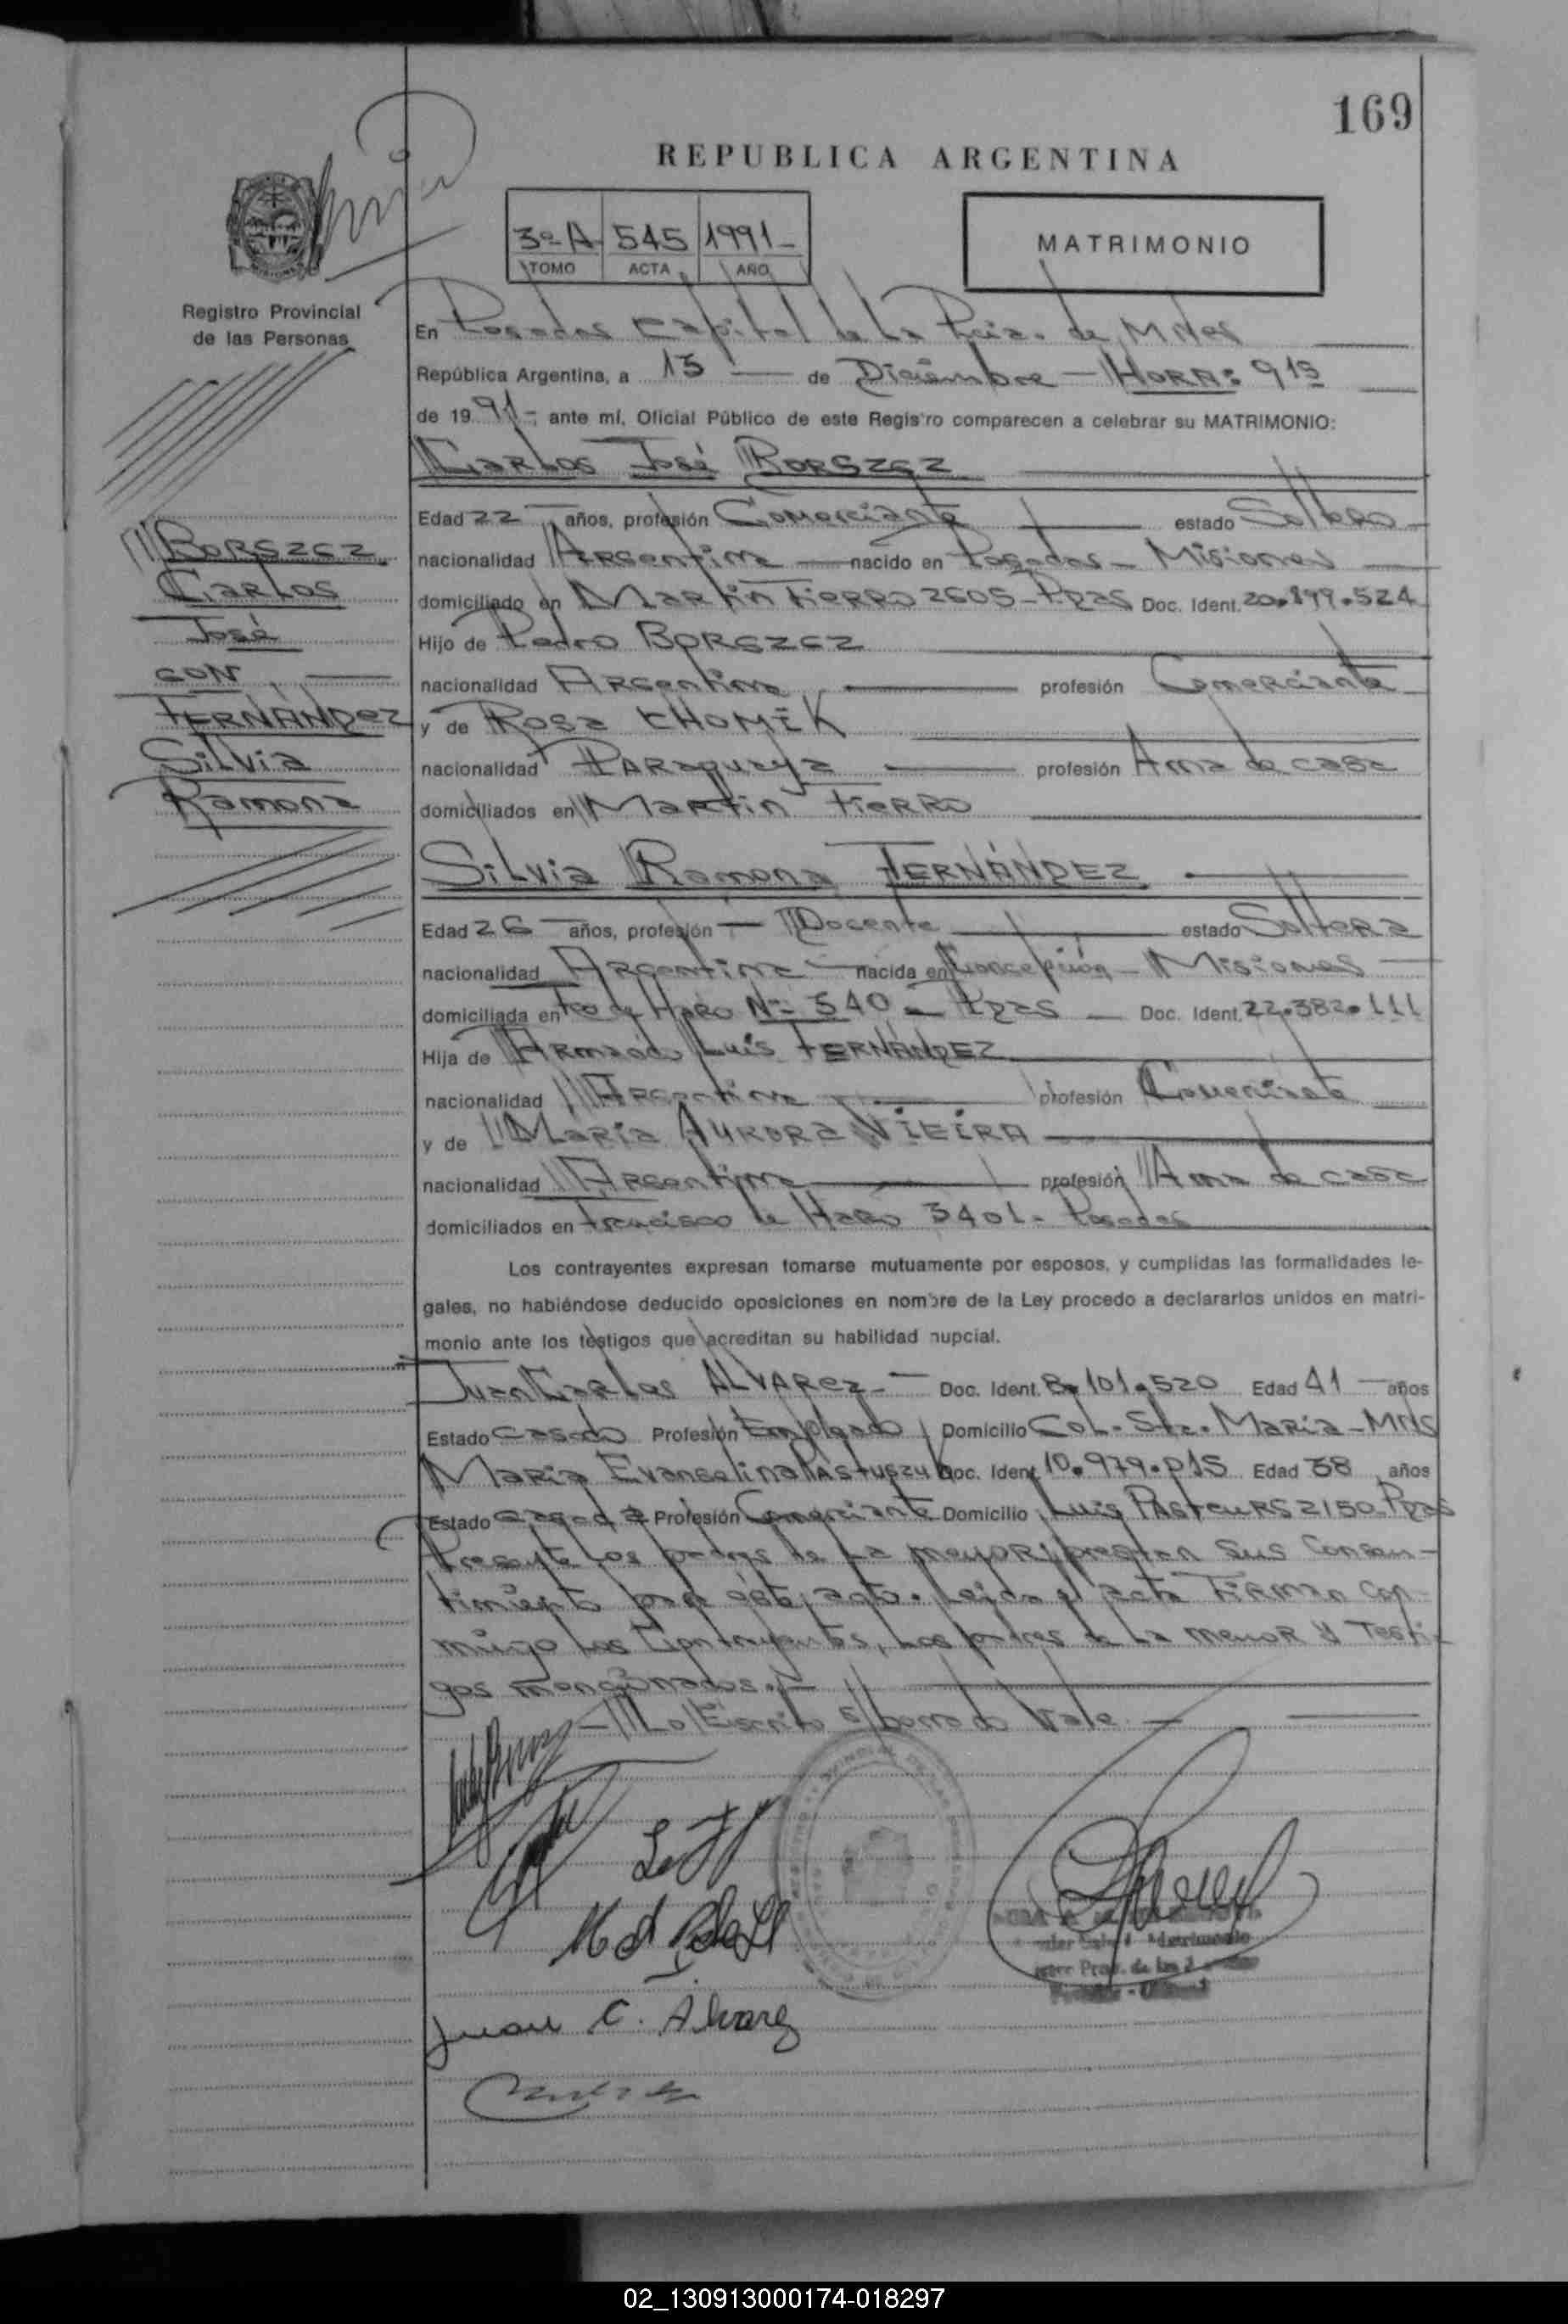 169
REPUBLICA ARGENTINA
3º A 545 1991-
TOMO ACTA AÑO
MATRIMONIO
Registro Provincial
de las Personas
En Posadas Capital de La Pcia. de Mnes
República Argentina, a 13 de Diciembre - HORA: 9 15
de 1991- ante mí, Oficial Público de este Registro comparecen a celebrar su MATRIMONIO:
Carlos José BORSZCZ
Edad 22 años, profesión Comerciante estado Soltero
nacionalidad Argentina nacido en Posadas - Misiones
domiciliado en Martin Fierro 2605 - Pdas Doc. Ident. 20.899.524
Hijo de Pedro BORSZCZ
nacionalidad Argentina profesión Comerciante
y de Rosa KHOMIK
nacionalidad Paraguaya profesión Ama de casa
domiciliados en Martin Fierro
BORSZCZ
Carlos
José
CON
FERNÁNDEZ
Silvia
Ramona
Silvia Ramona FERNÁNDEZ
Edad 26 años, profesión - Docente estado Soltera
nacionalidad Argentina nacida en Concepción - Misiones
domiciliada en Fco de Haro Nº 340 - Pdas - Doc. Ident. 22.382.111
Hija de Armando Luis FERNÁNDEZ
nacionalidad Argentina profesión Comerciante
y de Maria Aurora VIEIRA
nacionalidad Argentina profesión Ama de casa
domiciliados en Francisco de Haro 3401 - Posadas
Los contrayentes expresan tomarse mutuamente por esposos, y cumplidas las formalidades le-
gales, no habiéndose deducido oposiciones en nombre de la Ley procedo a declararlos unidos en matri-
monio ante los testigos que acreditan su habilidad nupcial.
Juan Carlos ALVAREZ - Doc. Ident. 8.101.520 Edad 41 años
Estado casado Profesión Empleado Domicilio Col. Sta. Maria - MNS
Maria Evangelina Doc. Ident. 10.979.015 Edad 38 años
Estado casada Profesión Comerciante Domicilio Luis Pasteur 2150 Pdas
Presente los padres de La menor, prestan sus Consen-
timiento para éste acto. Leida el acta Firman con-
migo los Contrayentes, los padres de La menor y Testi-
gos mencionados.-
- Lo Escrito s/borrado Vale -
Juan C. Alvarez
02_130913000174-018297